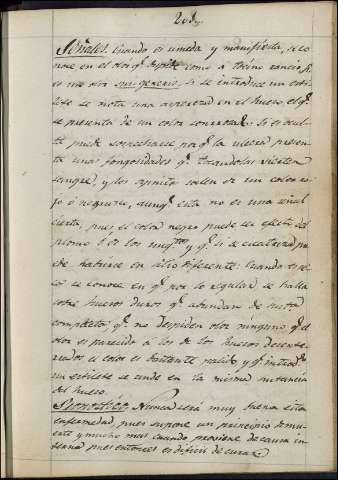 Señales. Cuando es umeda y manifiesta, se co
noce en el olor qᵉ despide como à tosino rancio, ò
es un olor sui generis. Si se introduce un esti
lete se nota una aspereza en el hueso, el qᵉ
se presenta de un color
te puede sospecharse por qᵉ la ulcera presen
ta unas fungosidades qᵉ tocandolas vierten
sangre, y los apositos salen de un color ro
jo ò negruzco, aunqᵉ esta no es una señal
cierta, pues el color negro puede ser efecto del
plomo ò de los y qᵉ si se cicatriza pu
ede habrirse en sitio diferente: Cuando es se
ca se conoce en qᵉ por lo regular se halla
sobre huesos duros qᵉ abundan de sustᵃ
compacta, qᵉ no despiden olor ninguno ò qᵉ el
olor es parecido à los de los huesos desenter
rados el color es bastante palido y qᵉ introdᵒ
un estilete se unde en la misma sustancia
del hueso.
Pronostico. Nunca será muy buena esta
enfermedad, pues supone un principio
y mucho mas cuando proviene de causa in
terna pues entonces es dificil de curar.